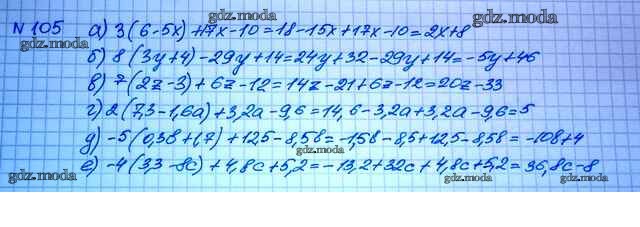 gdz.moda
gdz.moda
№ 105 а) 3(6-5x)+17x-10=18-15x+17x-10=2x+8
б) 8(3y+4)-29y+14=24y+32-29y+14=-5y+46
gdz.moda gdz.moda
в) 7(2z-3)+6z-12=14z-21+6z-12=20z-33
г) 2(7,3-1,6a)+3,2a-9,6=14,6-3,2a+3,2a-9,6=5
gdz.moda
д) -5(0,3b+1,7)+12,5-8,5b=-1,5b-8,5+12,5-8,5b=-10b+4
gdz.moda
е) -4(3,3-8c)+4,8c+5,2=-13,2+32c+4,8c+5,2=36,8c-8
gdz.moda gdz.moda